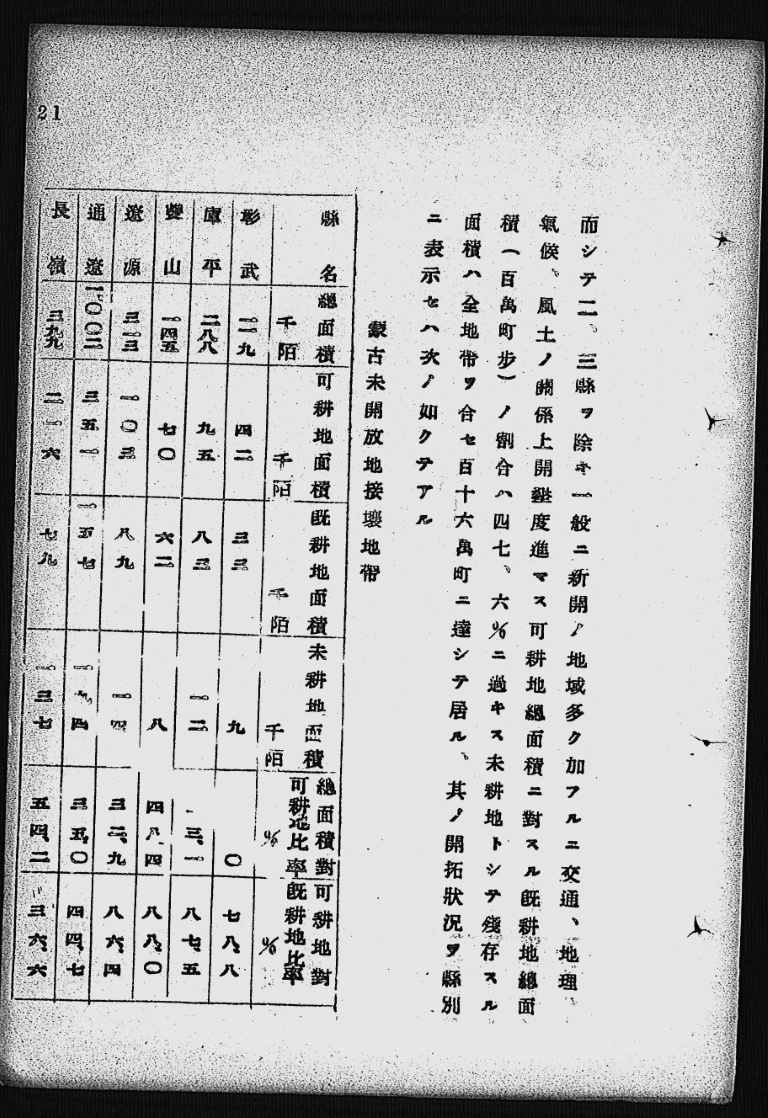 21
而シテ二、三縣ヲ除キ一般ニ新開ノ地域多ク加フルニ交通、地理、
氣候、風土ノ關係上開墾度進マス可耕地總面積ニ對スル既耕地總面
積(百萬町步)ノ割合ハ四七、六%ニ過キス未耕地トシテ殘存スル
面積ハ全地帶ヲ合セ百十六萬町ニ達シテ居ル、其ノ開拓狀況ヲ縣別
ニ表示セハ次ノ如クテアル
蒙古未開放地接壤地帶
縣名 總面積 千陌 可耕地面積 千陌 既耕地面積 千陌 未耕地面積 千陌 總面積對可耕地比率 % 可耕地對既耕地比率 %
彰武 一一九 四二 三三 九 七八、八
庫平 二八八 九五 八三 一二 三、一 八七、五
雙山 一四五 七〇 六二 八 四八、四 八八、〇
遼源 三一三 一〇三 八九 一四 三二、九 八六、四
通遼 一、〇〇二 三五一 一五七 一九四 三五、〇 四四、七
長嶺 三九九 二一六 七九 一三七 五四、二 三六、六